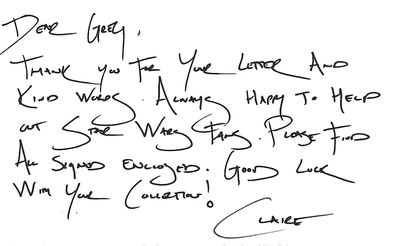 Dear Greg,
Thank you for your letter and
kind words. Always happy to help
out Star Wars fans. Please find
all signed enclosed. Good luck
with your collection!
Claire